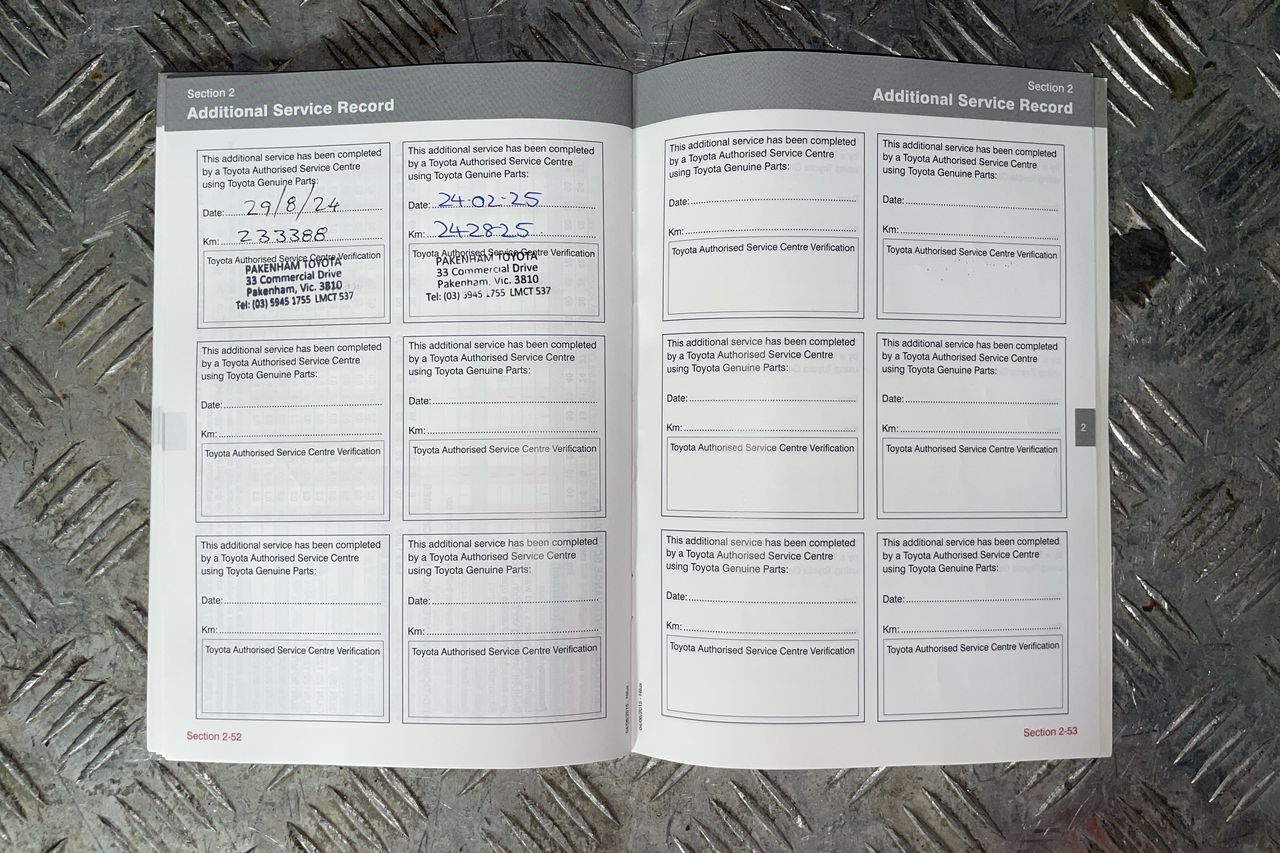 Section 2
Additional Service Record
This additional service has been completed
by a Toyota Authorised Service Centre
using Toyota Genuine Parts:
Date: 29/8/24
Km: 233388
Toyota Authorised Service Centre Verification
PAKENHAM TOYOTA
33 Commercial Drive
Pakenham, Vic. 3810
Tel: (03) 5945 1755 LMCT 537
This additional service has been completed
by a Toyota Authorised Service Centre
using Toyota Genuine Parts:
Date: 24-02-25
Km: 242825
Toyota Authorised Service Centre Verification
PAKENHAM TOYOTA
33 Commercial Drive
Pakenham, Vic. 3810
Tel: (03) 5945 1755 LMCT 537
This additional service has been completed
by a Toyota Authorised Service Centre
using Toyota Genuine Parts:
Date:
Km:
Toyota Authorised Service Centre Verification
This additional service has been completed
by a Toyota Authorised Service Centre
using Toyota Genuine Parts:
Date:
Km:
Toyota Authorised Service Centre Verification
This additional service has been completed
by a Toyota Authorised Service Centre
using Toyota Genuine Parts:
Date:
Km:
Toyota Authorised Service Centre Verification
This additional service has been completed
by a Toyota Authorised Service Centre
using Toyota Genuine Parts:
Date:
Km:
Toyota Authorised Service Centre Verification
Section 2-52
Section 2
Additional Service Record
This additional service has been completed
by a Toyota Authorised Service Centre
using Toyota Genuine Parts:
Date:
Km:
Toyota Authorised Service Centre Verification
This additional service has been completed
by a Toyota Authorised Service Centre
using Toyota Genuine Parts:
Date:
Km:
Toyota Authorised Service Centre Verification
This additional service has been completed
by a Toyota Authorised Service Centre
using Toyota Genuine Parts:
Date:
Km:
Toyota Authorised Service Centre Verification
This additional service has been completed
by a Toyota Authorised Service Centre
using Toyota Genuine Parts:
Date:
Km:
Toyota Authorised Service Centre Verification
2
This additional service has been completed
by a Toyota Authorised Service Centre
using Toyota Genuine Parts:
Date:
Km:
Toyota Authorised Service Centre Verification
This additional service has been completed
by a Toyota Authorised Service Centre
using Toyota Genuine Parts:
Date:
Km:
Toyota Authorised Service Centre Verification
Section 2-53